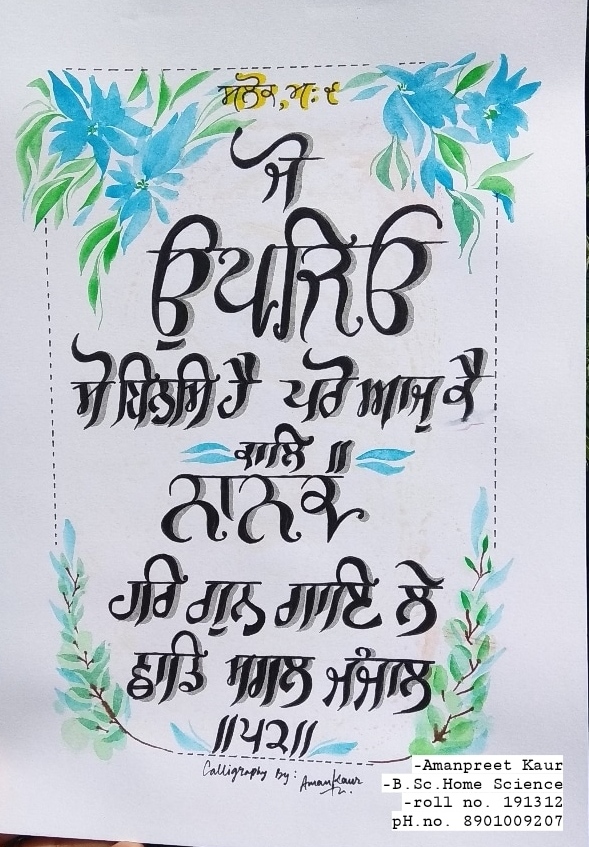 ਸਲੋਕ, ਮਃ ੯
ਜੋ
ਉਪਜਿਓ
ਸੋ ਬਿਨਸਿ ਹੈ ਪਰੋ ਆਜੁ ਕੈ
ਕਾਲਿ ॥
ਨਾਨਕ
ਹਰਿ ਗੁਨ ਗਾਇ ਲੇ
ਛਾਡਿ ਸਗਲ ਜੰਜਾਲ
॥੫੨॥
Calligraphy By: AmanKaur
-Amanpreet Kaur
-B.Sc.Home Science
-roll no. 191312
pH.no. 8901009207